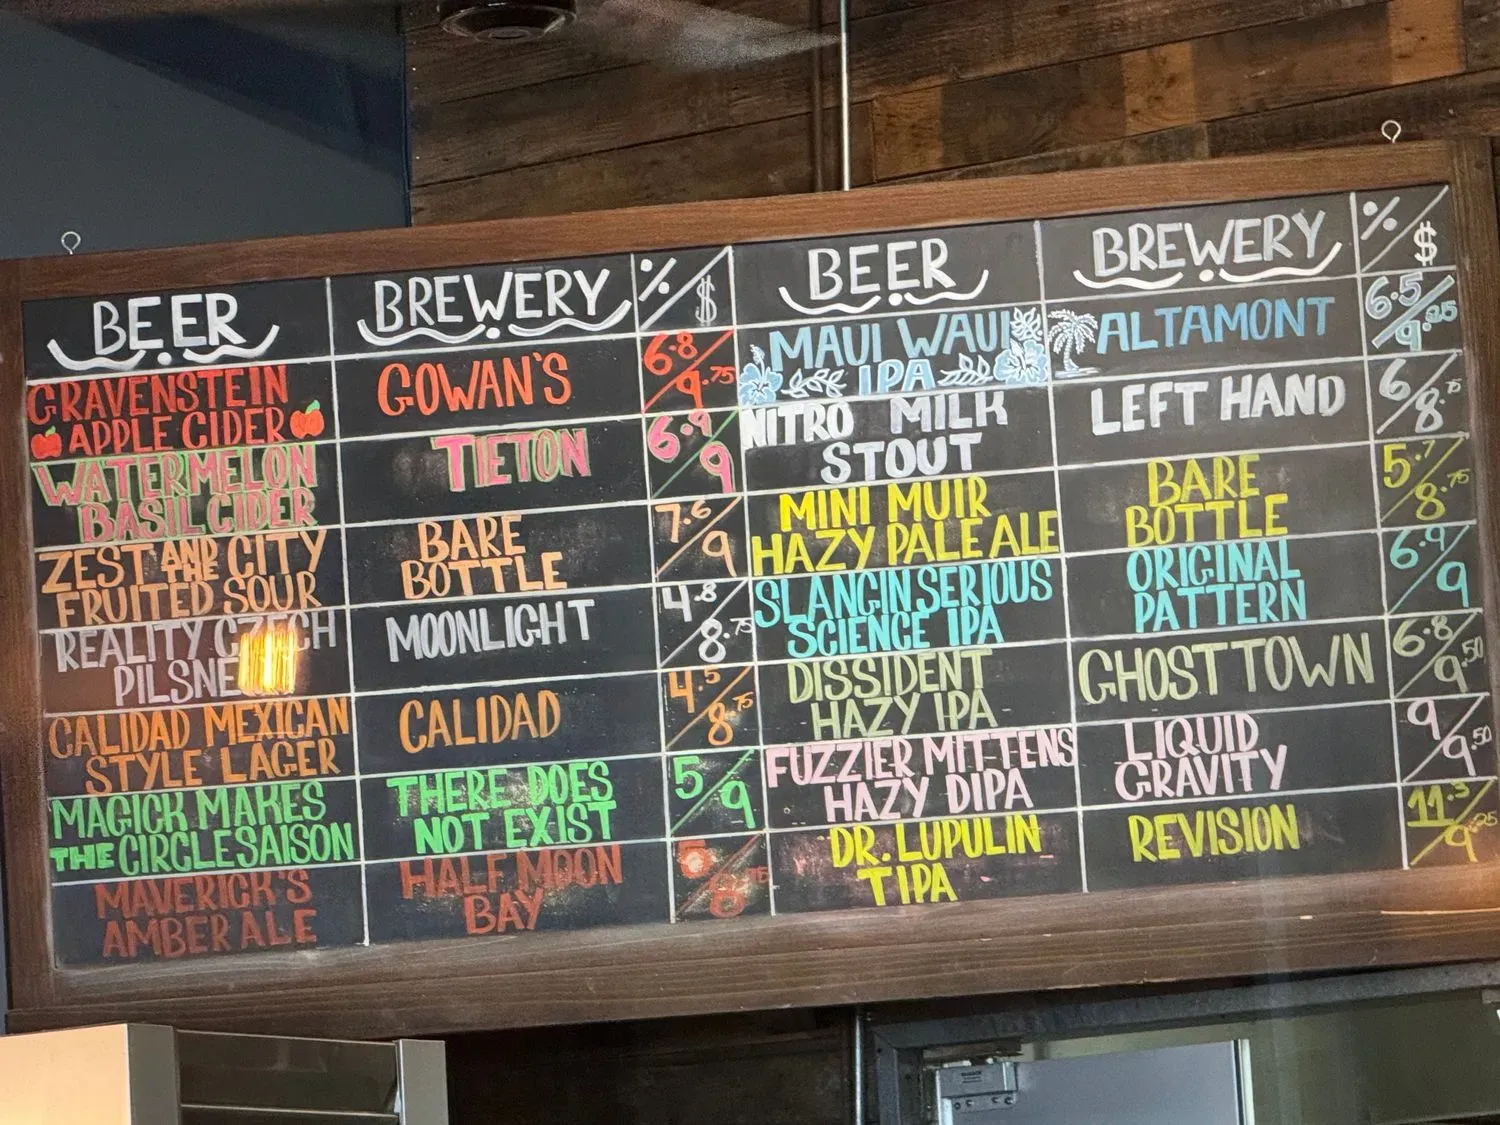 BEER BREWERY %/$
GRAVENSTEIN
APPLE CIDER GOWAN'S 6.8/9.75
WATERMELON
BASIL CIDER TIETON 6.9/9
ZEST AND THE CITY
FRUITED SOUR BARE
BOTTLE 7.6/9
REALITY CZECH
PILSNER MOONLIGHT 4.8/8.75
CALIDAD MEXICAN
STYLE LAGER CALIDAD 4.5/8.75
MAGICK MAKES
THE CIRCLE SAISON THERE DOES
NOT EXIST 5/9
MAVERICK'S
AMBER ALE HALF MOON
BAY 5/8.75
BEER BREWERY %/$
MAUI WAUI
IPA ALTAMONT 6.5/9.25
NITRO MILK
STOUT LEFT HAND 6/8.75
MINI MUIR
HAZY PALE ALE BARE
BOTTLE 5.7/8.75
SLANGIN SERIOUS
SCIENCE IPA ORIGINAL
PATTERN 6.9/9
DISSIDENT
HAZY IPA GHOST TOWN 6.8/9.50
FUZZIER MITTENS
HAZY DIPA LIQUID
GRAVITY 9/9.50
DR. LUPULIN
TIPA REVISION 11.3/9.25